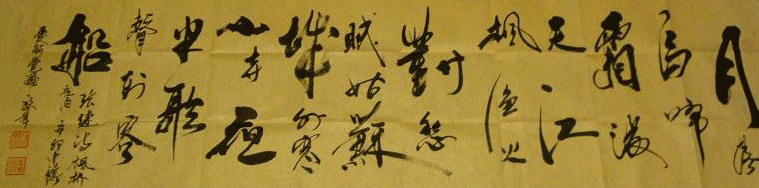 月落
烏啼
霜滿
天江
楓漁火
對愁
眠姑蘇
城外寒
山寺夜
半鐘
聲到客
船
張繼詩楓橋
夜泊辛卯